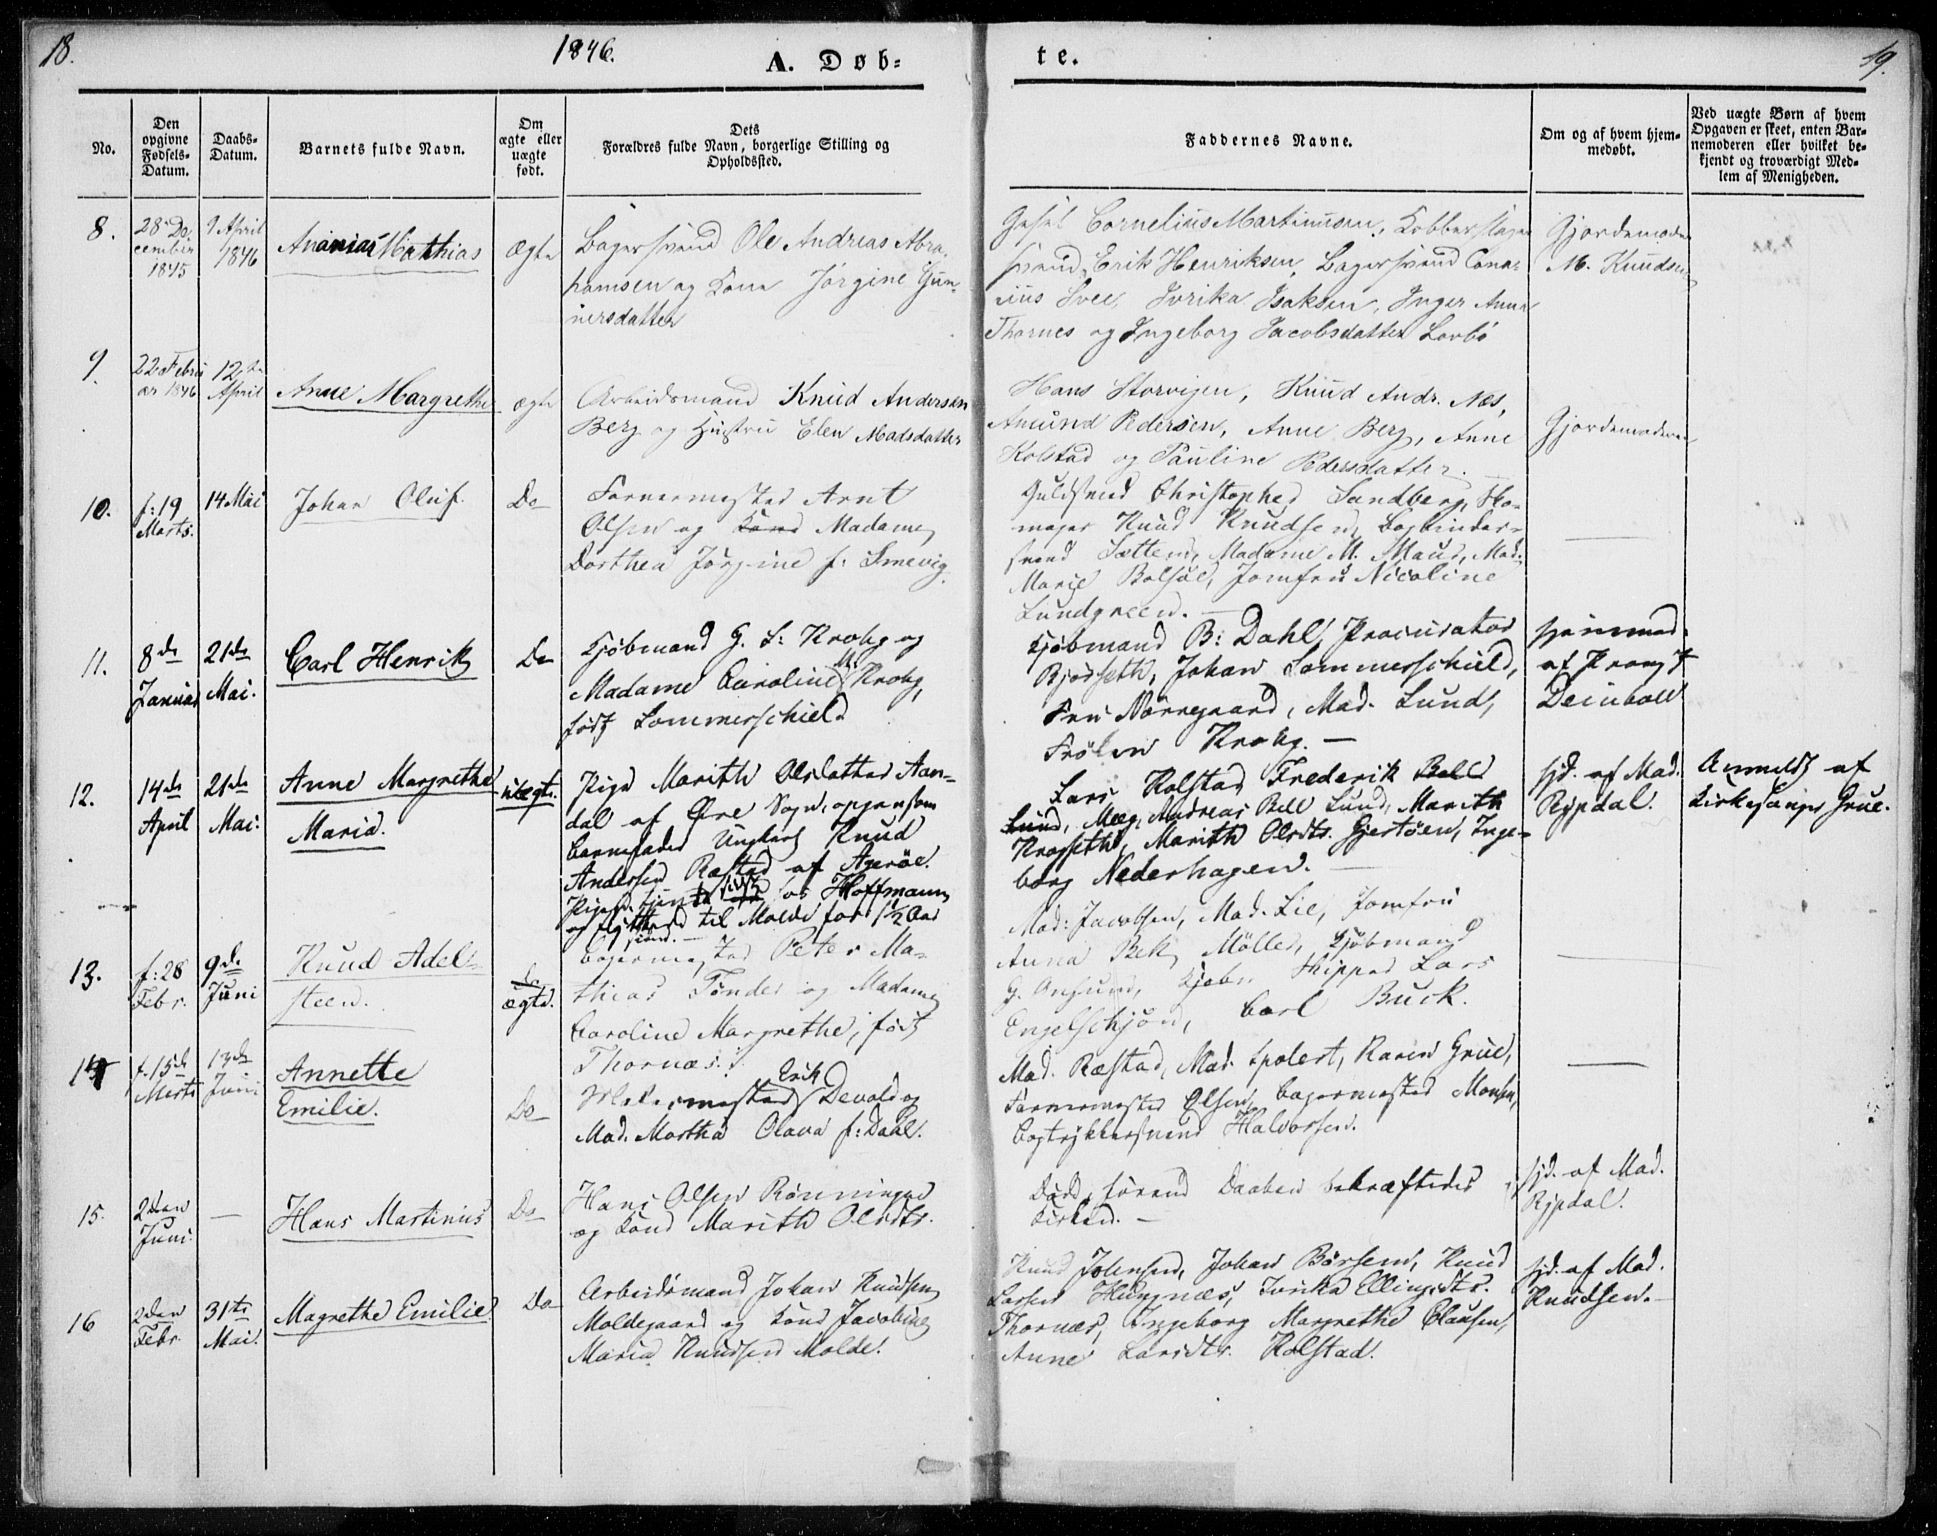 18.
1846.
A. Døb-
te.
19.
No.
Den
opgivne
Fødsels-
Datum.
Daabs-
Datum.
Barnets fulde Navn.
Om
ægte eller
uægte
født.
Dets
Forældres fulde Navn, borgerlige Stilling og
Opholdssted.
Faddernes Navne.
Om og af hvem hjem-
medøbt.
Ved uægte Børn af hvem
Opgaven er skeet, enten Bar-
nemoderen eller hvilket be-
kjendt og troværdigt Med-
lem af Menigheden.
8.
28 De
cember
1845
9 April
1846
Ananias Matthias
ægte
Bagersvend Ole Andreas Abra-
hamsen og Kone Jørgine Gun-
nersdatter
Cornelius Martinusen, Kobberslager
svend Erik Henriksen, Bagersvend
Svee, Isaksen, Inger Anna
Thornes og Ingeborg Jacobsdatter Lovbø
Gjordemoder
M. Knudsen
9.
22 Febru
ar 1846
12te
April
Anne Margrethe
ægte
Arbeidsmand Knud Andersen
Berg og Hustru Elen Madsdatter
Hans Storvigen, Knud Andr. Næs,
Amund Pedersen, Anne Berg, Anne
Kolstad og Pauline Pedersdatter.
Gjordemoderen
10.
f: 19
Marts.
14 Mai
Johan Oluf.
Do
Farvermester Arnt
Olsen og Kone Madame
Dorthea Jørgine f: Smevig.
Guldsmed Christopher Sandberg, Sko-
mager Knud Knudsen, Bogbinder-
svend Sættem, Madame M. Maus, Mad.
Marie Bolsøe, Jomfru Nicoline
Lundgreen. —
—
11.
8de
Januar
21de
Mai.
Carl Henrik
Do
Kjøbmand G. S: Krohg og
Madame Caroline Krohg,
født Sommerschield
Kjøbmand B: Dahl, Procurator
Bjørseth, Johan Sommerschield,
Fru Nørregaard, Mad. Lund,
Frøken Krohg. —
hjemmed.
af Provst
Deinboll
12.
14de
April
21de
Mai.
Anne Margrethe
Maria.
uægte.
Pige Marith Olsdatter Aan-
dal af Øre Sogn, opgav som
Barnefader Ungkarl Knud
Andersen Ræstad af Agerøe.
Pigen tjente sidst hos Hoffmann
og flyttede til Molde for 1½ Aar
siden. —
Lars Kolstad, Frederik Bell
Lund, Mæg. Andreas Bell Lund, Marith
Krogseth, Marith Olsdtr. Gjerstøen, Inge-
borg Nederhagen. —
hjd. af Mad.
Rypdal.
Anmeldt af
Kirkesanger Grue.
13.
f: 28
Febr.
9de
Juni
Knud Adel-
steen.
Do
ægte.
Bagermester Peter Ma-
thias Tønder og Madame
Caroline Margrethe, født
Thornæs.
Mad: Jacobsen, Mad. Lie, Jomfru
Anna Bek Møller, Kjøbmand
G. Kjøbm. Skipper Lars
Engelschjøn, Carl Buck.
—
14
f. 15de
Marts
13de
Juni
Annette
Emilie.
Do
Malermester Erik Devold og
Mad. Martha Olava f: Dahl.
Mad. Ræstad, Mad. Spolert, Karen Grue,
Farvermester Olsen, Bagermester Monsen,
Bogtrykkersvend Halvorsen.
—
15.
2den
Juni.
—
Hans Martinus
Do
Hans Olsen Rønningen
og Kone Marith Olsdtr.
Død, førend Daaben bekræftedes i
Kirken. —
hjd. af Mad.
Rypdal.
16
2den
Febr.
31te
Mai.
Magrethe Emilie
Do
Arbeidsmand Johan Knudsen
Moldegaard og Kone Jacobine
Maria Knudsen Molde.
Knud Johnsen, Johan Børsem, Knud
Larsen Hungnæs, Ellingsdtr.
Thornæs, Ingeborg Margrethe Clausen,
Anne Larsdtr. Kolstad.
hjd. af Mad.
Knudsen.